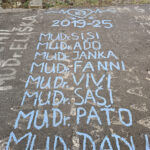 2019-25
MUDr. SISI
MUDr. ADO
MUDr. JANKA
MUDr. FANNI
MUDr. VIVI
MUDr. SASI
MUDr. PATO
MUDr. DANU
MUDr. ELIŠKA